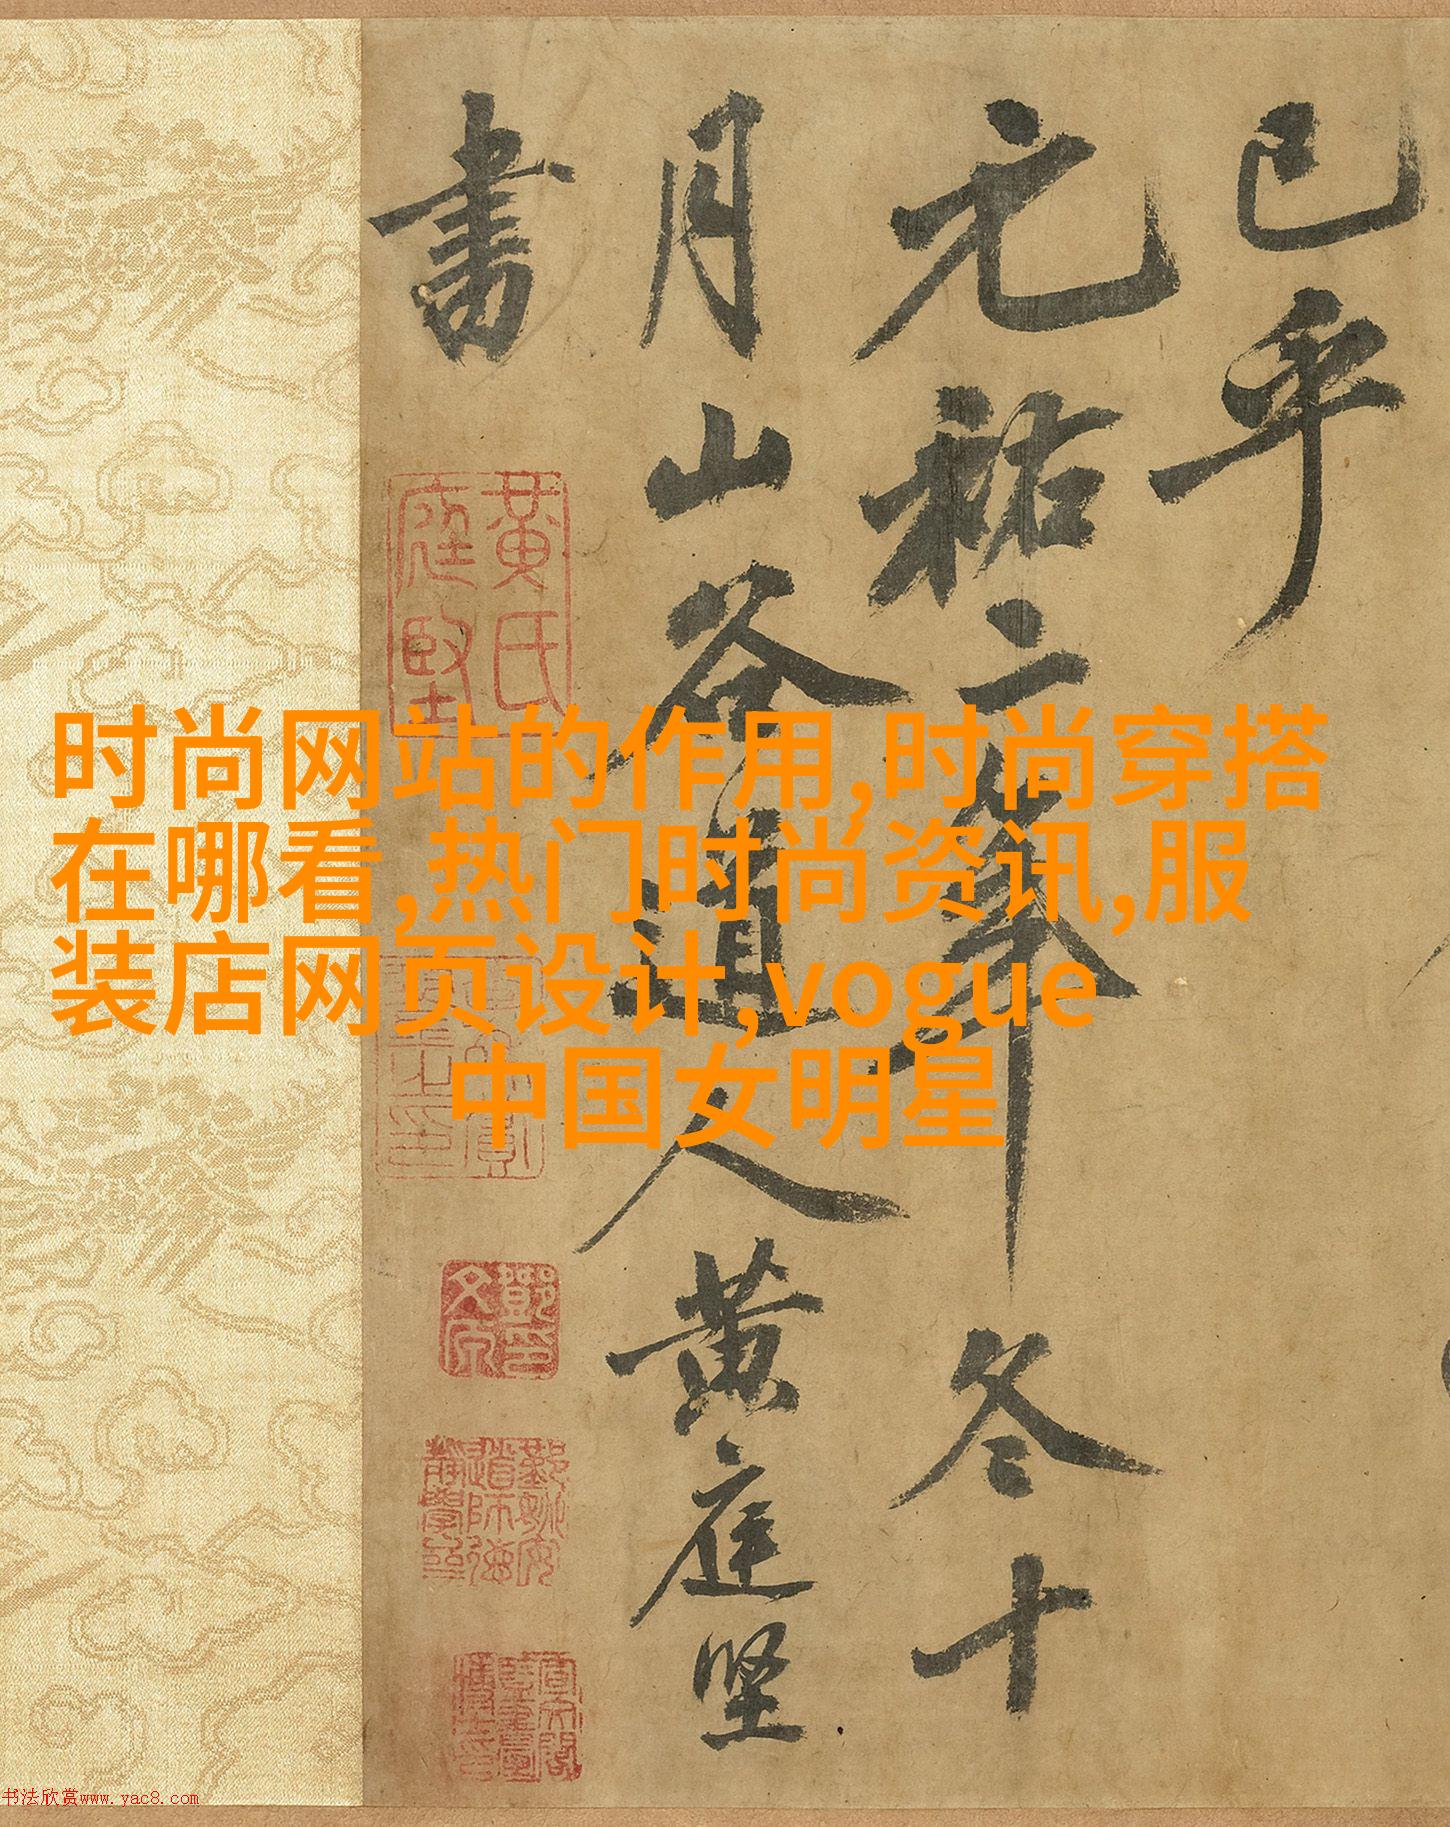 已乎
元祐二年冬十
月山谷道人黄庭堅
書
黄氏
庭堅
时尚网站的作用,时尚穿搭
在哪看,热门时尚资讯,服
装店网页设计,vogue
中国女明星
书法欣赏www.yac8.com